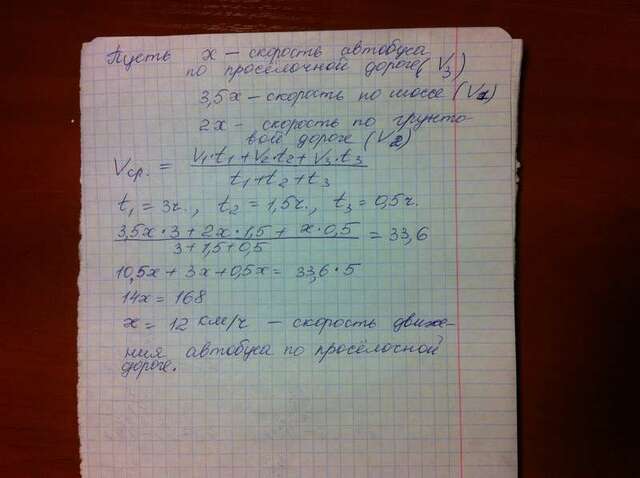 Пусть x – скорость автобуса
по просёлочной дороге (V3)
3,5x – скорость по шоссе (V1)
2x – скорость по грунто-
вой дороге (V2)
Vср. = V1·t1+V2·t2+V3·t3
t1+t2+t3
t1 = 3ч., t2 = 1,5ч., t3 = 0,5ч.
3,5x·3 + 2x·1,5 + x·0,5 = 33,6
3+1,5+0,5
10,5x + 3x + 0,5x = 33,6·5
14x = 168
x = 12 км/ч – скорость движе-
ния автобуса по просёлочной
дороге.